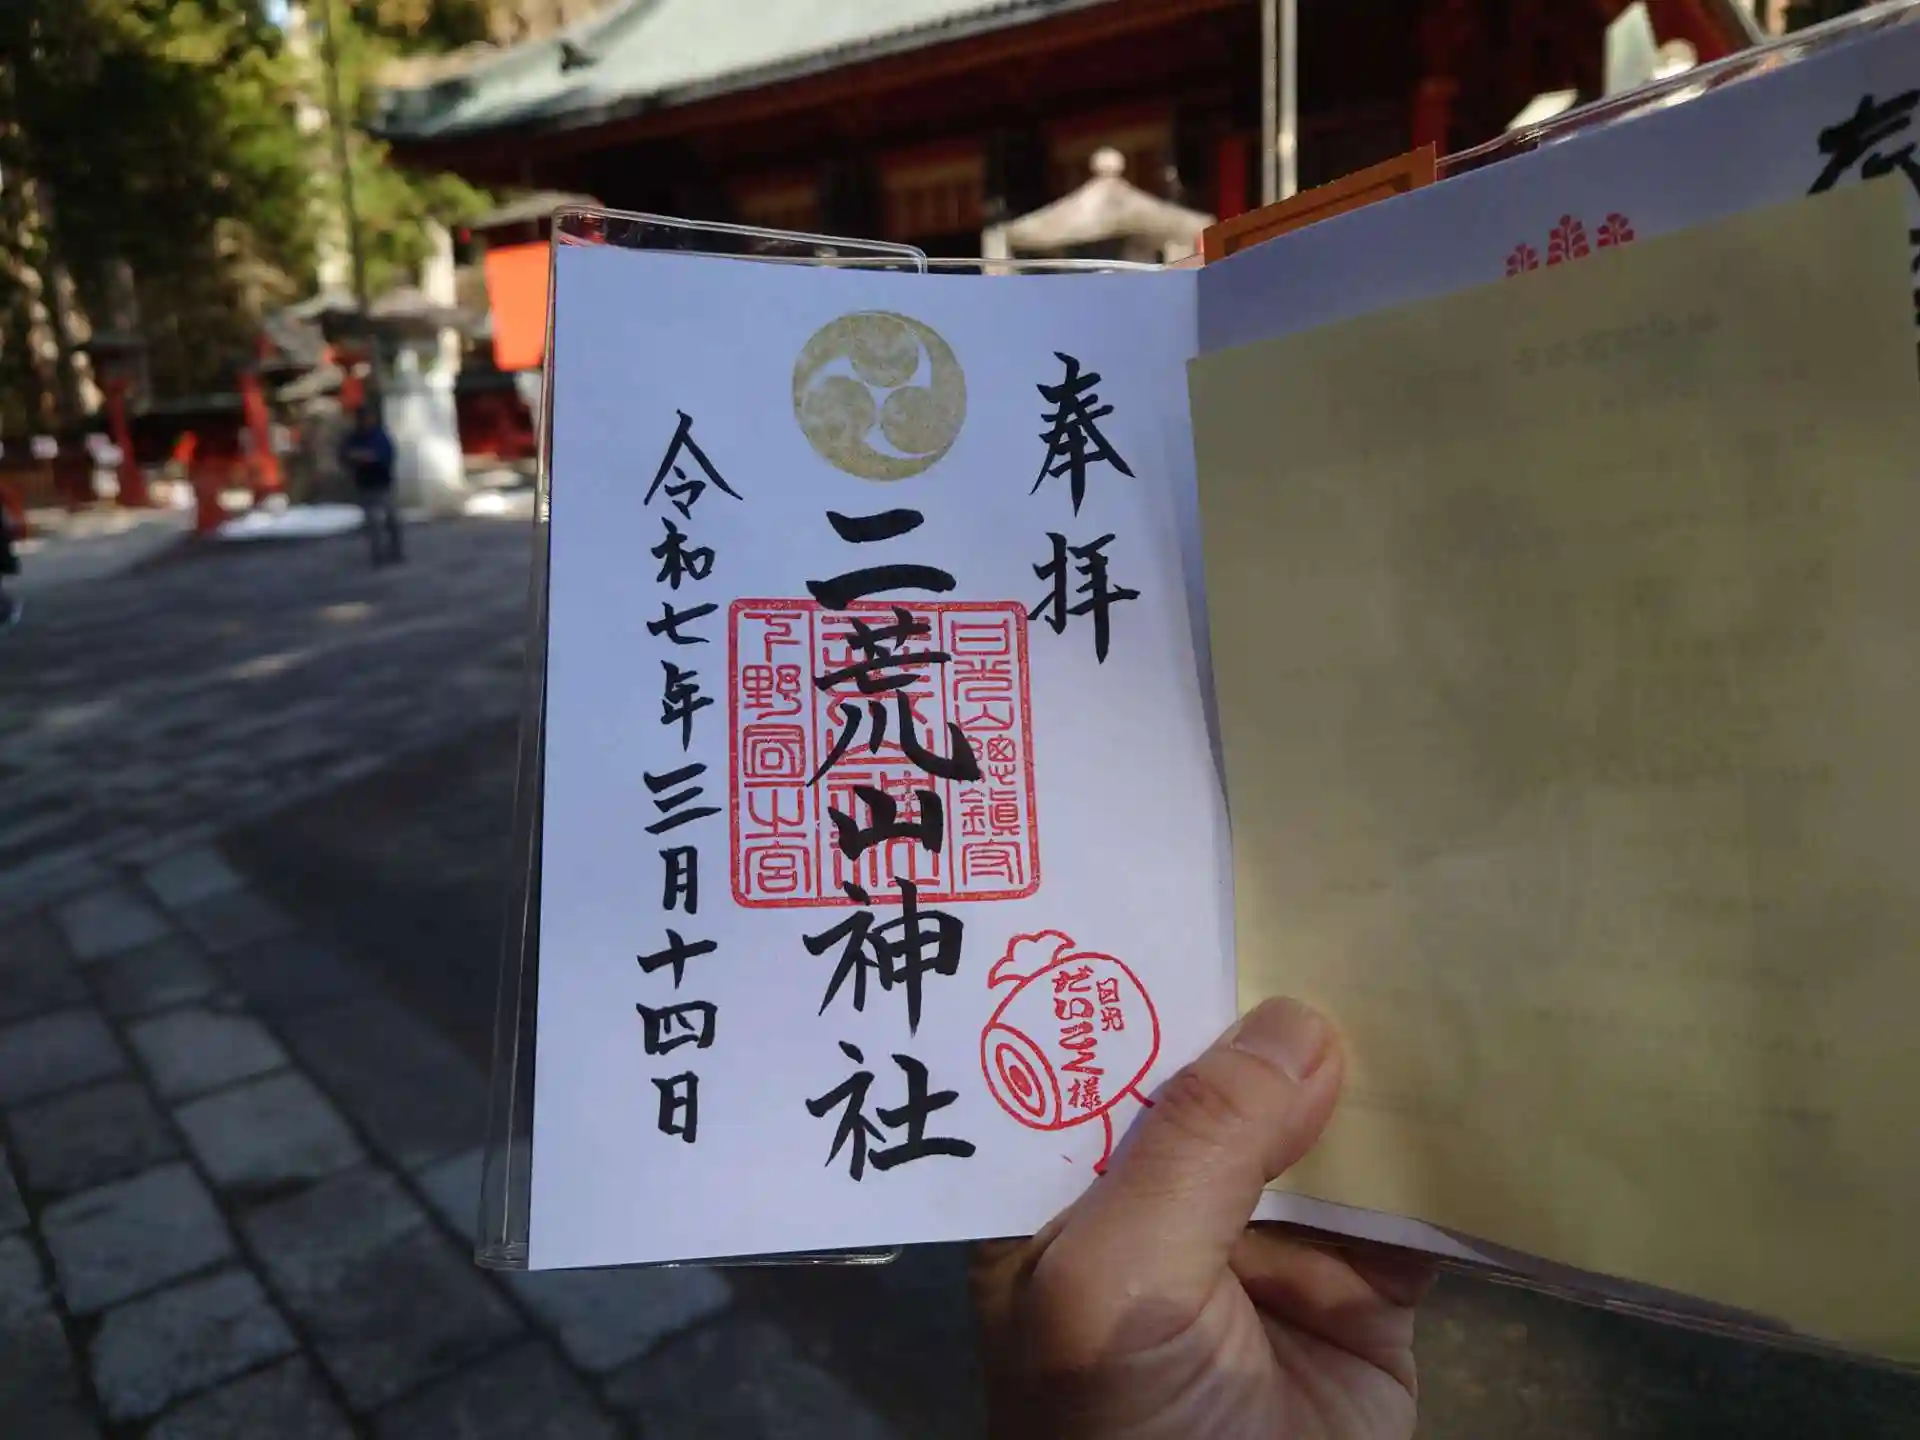 奉拝
二荒山神社
令和七年三月十四日
日光山總鎮守
下野國一宮
日光
だいこく様